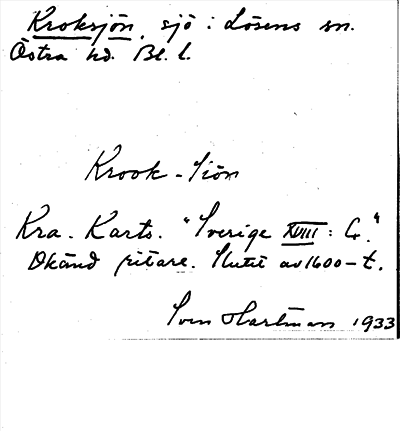 Kroksjön, sjö i Lösens sn.
Östra hd. Bl. l.
Krook-Siön
Kra. Kartv. "Sverige XVIII: G."
Okänd ritare. Slutet av 1600-t.
Sven Hartman 1933